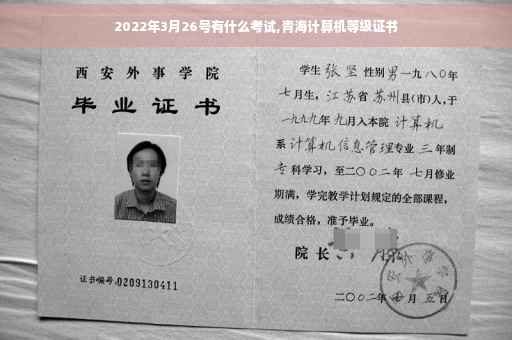 2022年3月26号有什么考试,青海计算机等级证书
西安外事学院
毕业证书
证书编号:0209130411
学生张坚性别男一九八〇年
七月生,江苏省苏州县(市)人,于
一九九九年九月入本院计算机
系计算机信息管理专业三年制
专科学习,至二〇〇二年七月修业
期满,学完教学计划规定的全部课程,
成绩合格,准予毕业。
院长
二〇〇二年 月五日